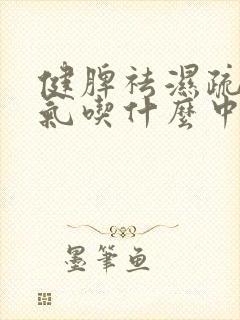 健脾祛濕疏
氣喫什麼中
墨筆魚